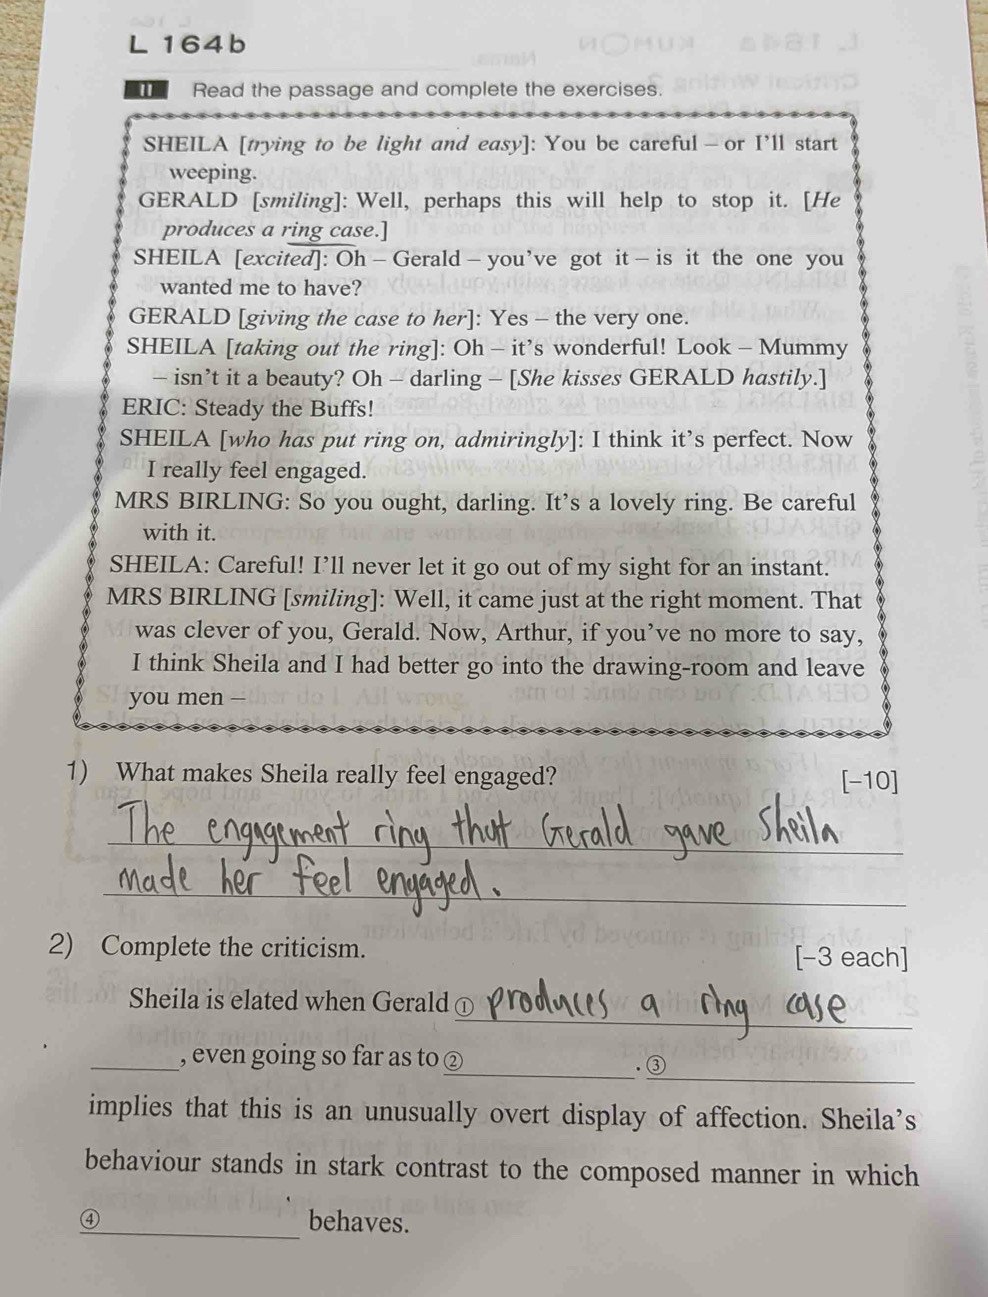 L 164b
II Read the passage and complete the exercises.
SHEILA [trying to be light and easy]: You be careful – or I'll start
weeping.
GERALD [smiling]: Well, perhaps this will help to stop it. [He
produces a ring case.]
SHEILA [excited]: Oh – Gerald – you've got it – is it the one you
wanted me to have?
GERALD [giving the case to her]: Yes – the very one.
SHEILA [taking out the ring]: Oh – it's wonderful! Look – Mummy
– isn't it a beauty? Oh – darling – [She kisses GERALD hastily.]
ERIC: Steady the Buffs!
SHEILA [who has put ring on, admiringly]: I think it's perfect. Now
I really feel engaged.
MRS BIRLING: So you ought, darling. It's a lovely ring. Be careful
with it.
SHEILA: Careful! I'll never let it go out of my sight for an instant.
MRS BIRLING [smiling]: Well, it came just at the right moment. That
was clever of you, Gerald. Now, Arthur, if you've no more to say,
I think Sheila and I had better go into the drawing-room and leave
you men –
1) What makes Sheila really feel engaged? [–10]
The engagement ring that Gerald gave Sheila
made her feel engaged.
2) Complete the criticism. [–3 each]
Sheila is elated when Gerald ① produces a ring case
, even going so far as to ② . ③
implies that this is an unusually overt display of affection. Sheila's
behaviour stands in stark contrast to the composed manner in which
④ behaves.